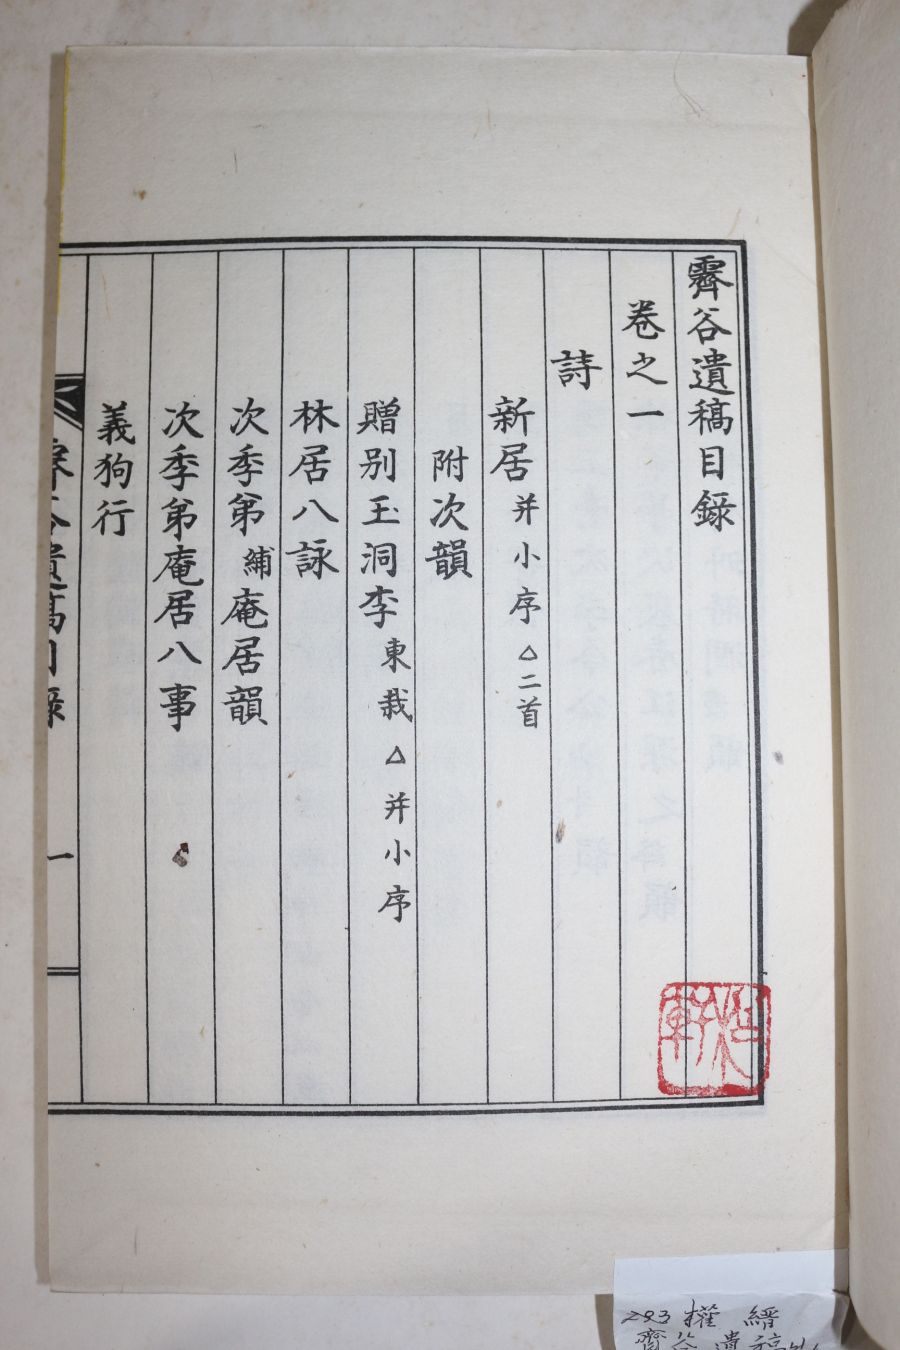 霽谷遺稿目錄
卷之一
詩
新居 并小序△二首
附次韻
贈別玉洞李 東栽△并小序
林居八詠
次季弟 䋠 庵居韻
次季弟庵居八事
義狗行
霽谷遺稿目錄 一
283 權 縉
霽谷遺稿